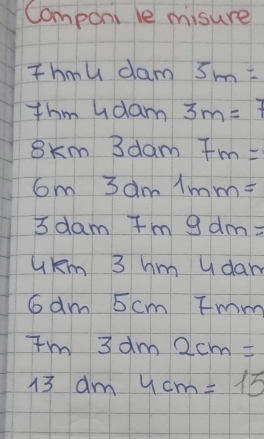 Componi le misure
7hm4 dam 5m=
7hm 4dam 3m= 7
8km 3dam 7m=
6m 3dm 1mm=
3dam 7m 9dm=
4km 3 hm 4 dam
6dm 5cm 7mm
7m 3dm 2cm=
13 dm 4cm= 13